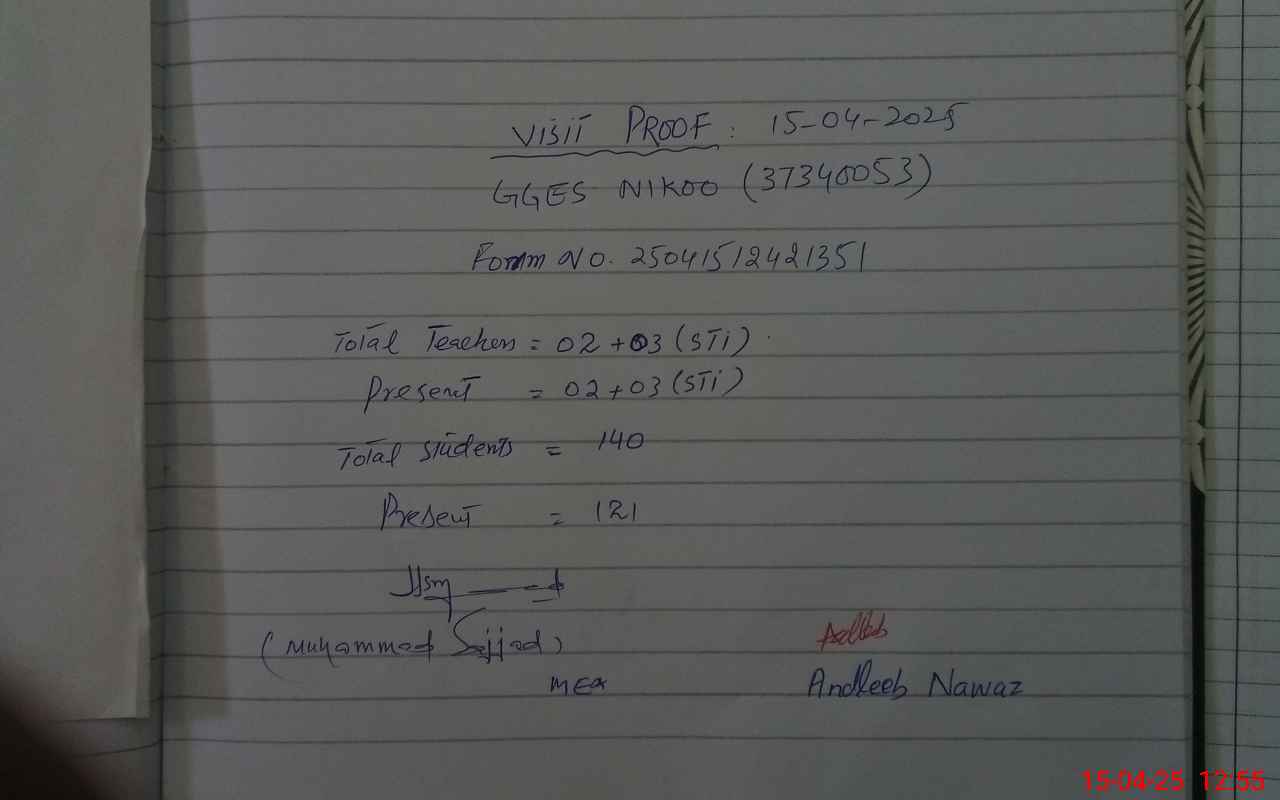 VISIT PROOF : 15-04-2025
GGES NIKOO (37340053)
Form No. 250415124421351
Total Teachers = 02 + 03 (STi)
Present = 02 + 03 (STi)
Total Students = 140
Present = 121
(Muhammad Sajjad)
MEA
Andleeb Nawaz
15-04-25 12:55